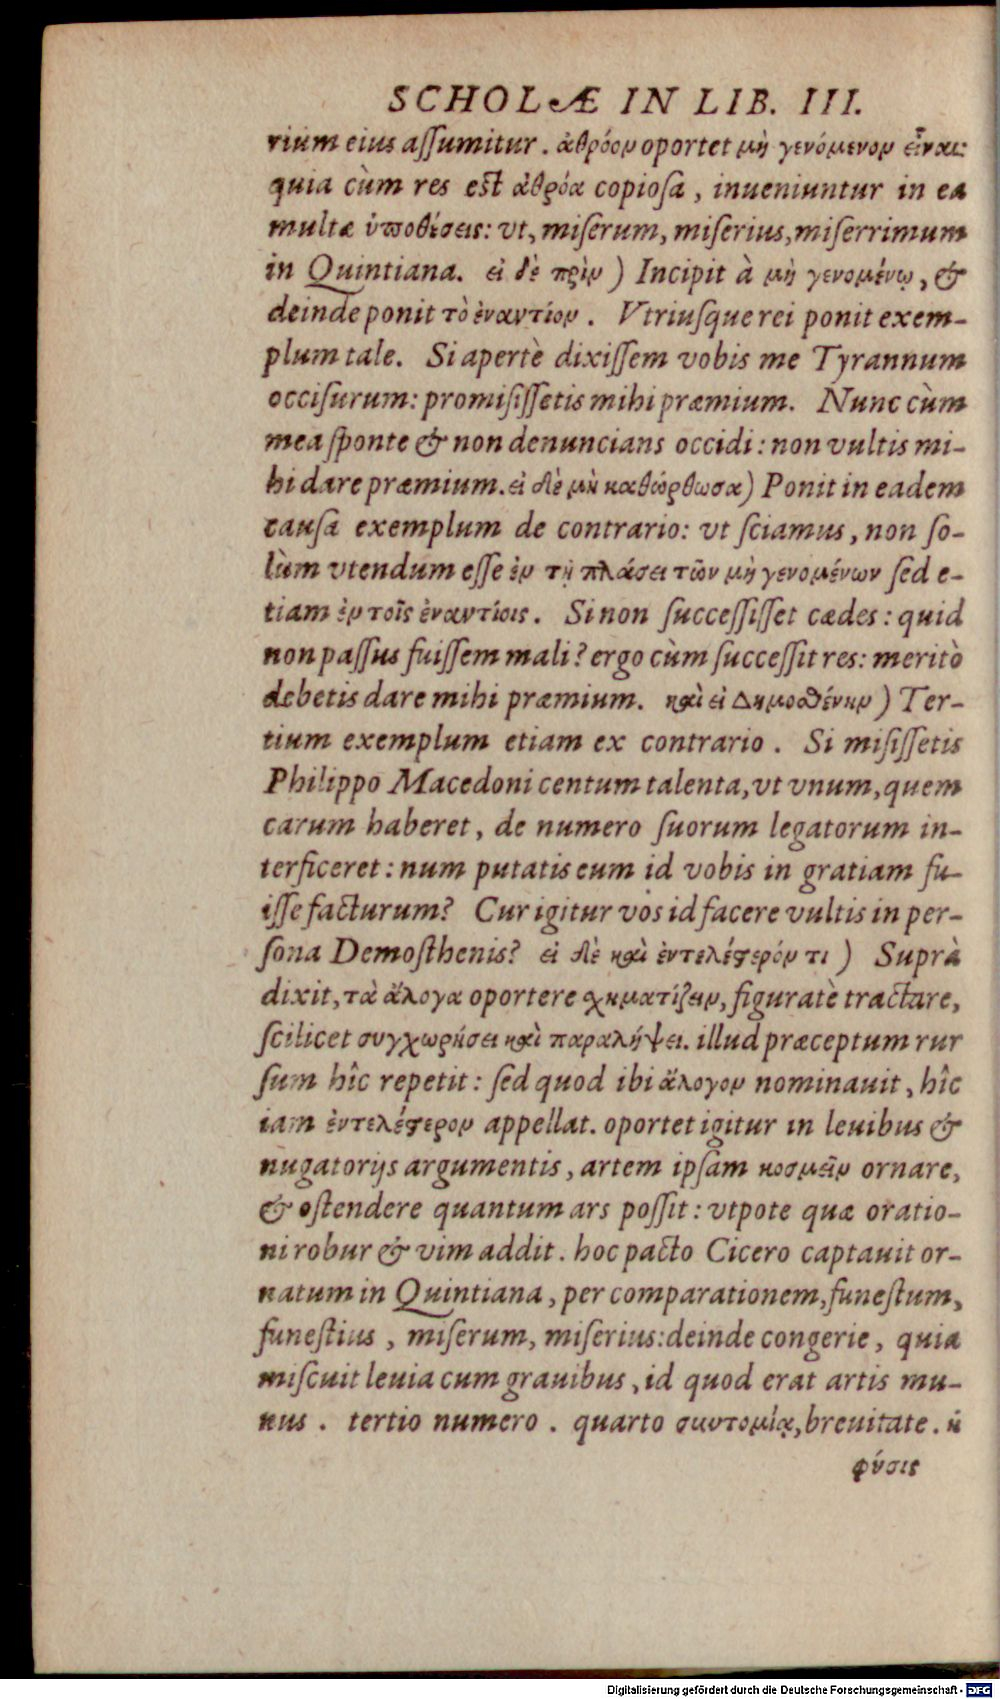 SCHOLÆ IN LIB. III.
rium eius aſſumitur. ἀθρόον oportet μὴ γενόμενον εἶναι:
quia cùm res est ἀθρόα copioſa, inueniuntur in ea
multæ ὑποθέσεις: vt, miſerum, miſerius, miſerrimum
in Quintiana. εἰ δὲ πρὶν) Incipit à μὴ γενομένῳ, &
deinde ponit τὸ ἐναντίον. Vtriuſque rei ponit exem-
plum tale. Si apertè dixiſſem vobis me Tyrannum
occiſurum: promiſiſſetis mihi præmium. Nunc cùm
mea ſponte & non denuncians occidi: non vultis mi-
hi dare præmium. εἰ δὲ μὴ καθώρθωσα) Ponit in eadem
cauſa exemplum de contrario: vt ſciamus, non ſo-
lùm vtendum eſſe ἐν τῇ πλάσει τῶν μὴ γενομένων ſed e-
tiam ἐν τοῖς ἐναντίοις. Si non ſucceſſiſſet cædes: quid
non paſſus fuiſſem mali? ergo cùm ſucceſſit res: meritò
debetis dare mihi præmium. καὶ εἰ Δημοσθένην) Ter-
tium exemplum etiam ex contrario. Si miſiſſetis
Philippo Macedoni centum talenta, vt vnum, quem
carum haberet, de numero ſuorum legatorum in-
terficeret: num putatis eum id vobis in gratiam fu-
iſſe facturum? Cur igitur vos id facere vultis in per-
ſona Demoſthenis? εἰ δὲ καὶ ἐντελέστερόν τι) Suprà
dixit, τὰ ἄλογα oportere σχηματίζειν, figuratè tractare,
ſcilicet συγχωρήσει καὶ παραλήψει. illud præceptum rur
ſum hîc repetit: ſed quod ibi ἄλογον nominauit, hîc
iam ἐντελέστερον appellat. oportet igitur in leuibus &
nugatorijs argumentis, artem ipſam κοσμεῖν ornare,
& oſtendere quantum ars poſſit: vtpote quæ oratio-
ni robur & vim addit. hoc pacto Cicero captauit or-
natum in Quintiana, per comparationem, funeſtum,
funeſtius, miſerum, miſerius: deinde congerie, quia
miſcuit leuia cum grauibus, id quod erat artis mu-
nus. tertio numero. quarto συντομίᾳ, breuitate. ἡ
φύσις
Digitalisierung gefördert durch die Deutsche Forschungsgemeinschaft - DFG